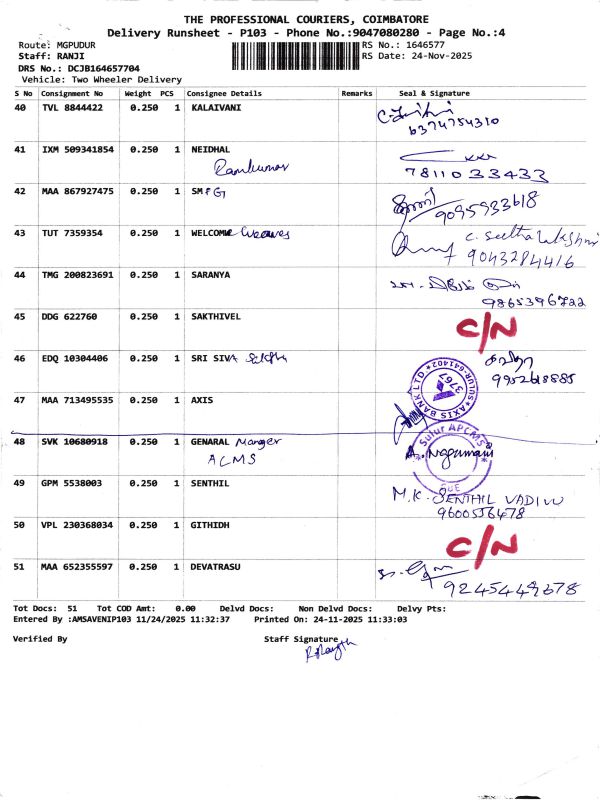 THE PROFESSIONAL COURIERS, COIMBATORE
Delivery Runsheet - P103 - Phone No.:9047080280 - Page No.:4
Route: MGPUDUR
RS No.: 1646577
Staff: RANJI
RS Date: 24-Nov-2025
DRS No.: DCJB164657704
Vehicle: Two Wheeler Delivery
S No Consignment No Weight PCS Consignee Details Remarks Seal & Signature
40 TVL 8844422 0.250 1 KALAIVANI
6374754310
41 IXM 509341854 0.250 1 NEIDHAL
Ramkumar
7811033433
42 MAA 867927475 0.250 1 SMFG
9095933618
43 TUT 7359354 0.250 1 WELCOME Weaves C. Seetha lakshmi
9043284416
44 TMG 200823691 0.250 1 SARANYA
9865396722
45 DDG 622760 0.250 1 SAKTHIVEL C/N
46 EDQ 10304406 0.250 1 SRI SIVA
9952618885
47 MAA 713495535 0.250 1 AXIS
AXIS BANK LTD * SULUR-641402 *
3763
48 SVK 10680918 0.250 1 GENARAL Manger
ACMS
Sulur APCMS
A. Nagamani
CBE
49 GPM 5538003 0.250 1 SENTHIL
M.K. SENTHIL VADIVU
9600556478
50 VPL 230368034 0.250 1 GITHIDH C/N
51 MAA 652355597 0.250 1 DEVATRASU
9245449678
Tot Docs: 51 Tot COD Amt: 0.00 Delvd Docs: Non Delvd Docs: Delvy Pts:
Entered By :AMSAVENIP103 11/24/2025 11:32:37 Printed On: 24-11-2025 11:33:03
Verified By Staff Signature